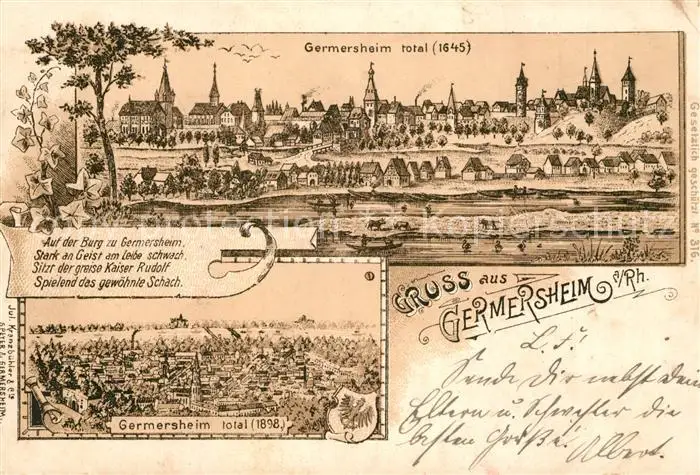 Germersheim total (1645)
Gesetzlich geschützt No 316.
Auf der Burg zu Germersheim,
Stark an Geist am Leibe schwach,
Sitzt der greise Kaiser Rudolf
Spielend das gewohnte Schach.
GRUSS aus
GERMERSHEIM a/Rh.
Germersheim total (1898.)
Jul. Kranzbühler & Cie
SPEYER & GERMERSHEIM.
L. F.!
Sende Dir nebst Dein
Eltern u. Schwester die
besten Grüße!
Albert.